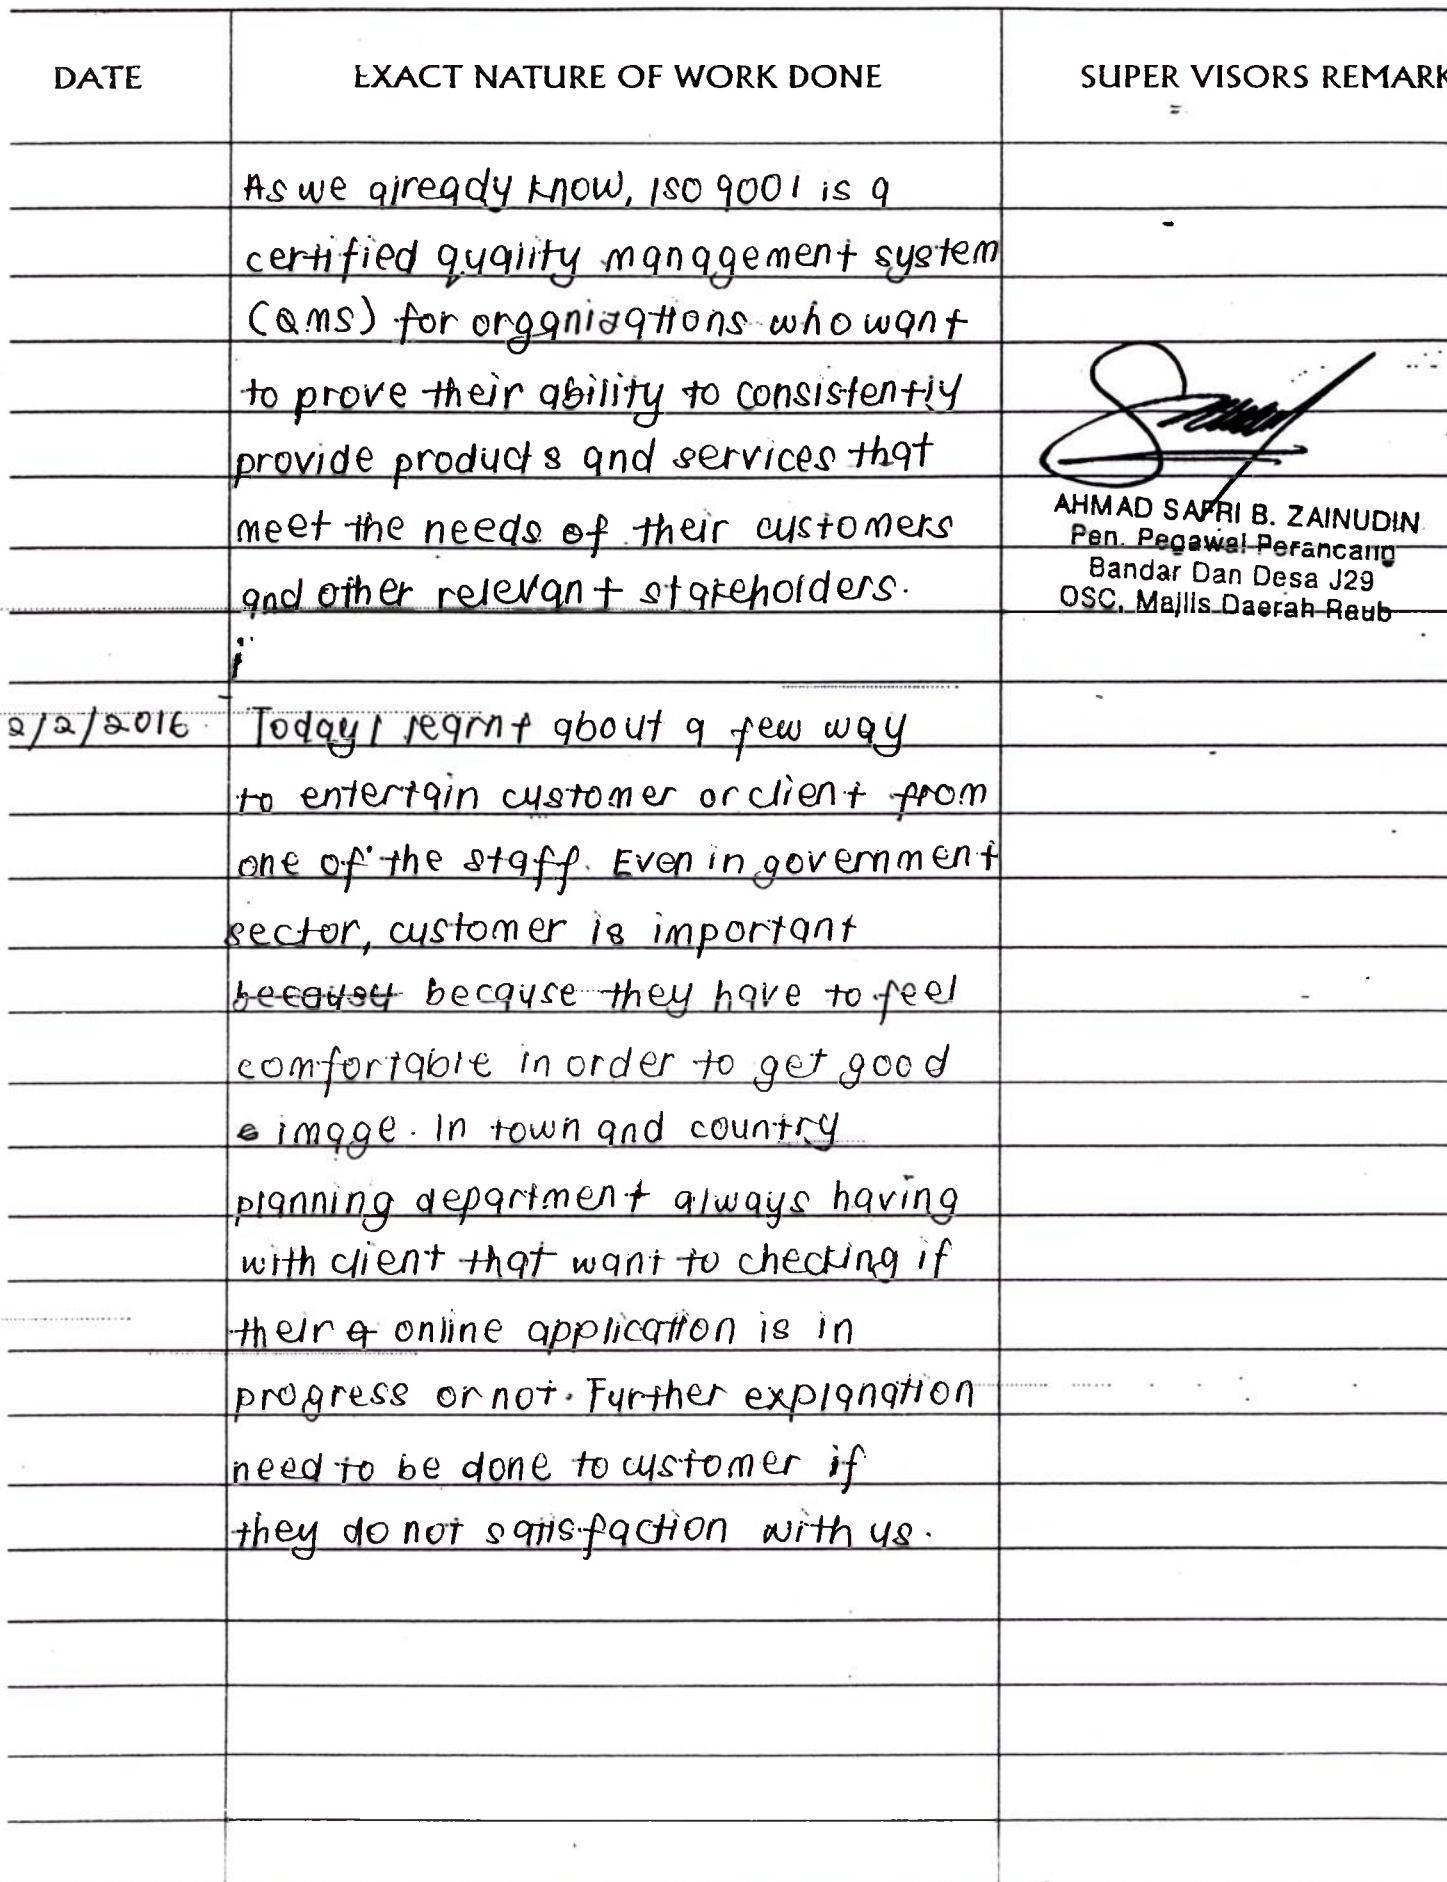 DATE EXACT NATURE OF WORK DONE SUPER VISORS REMARK
As we already know, ISO 9001 is a
certified quality management system
(QMS) for organizations who want
to prove their ability to consistently
provide products and services that
meet the needs of their customers
and other relevant stakeholders.
AHMAD SAFRI B. ZAINUDIN
Pen. Pegawai Perancang
Bandar Dan Desa J29
OSC, Majlis Daerah Raub
2/2/2016 Today I learnt about a few way
to entertain customer or client from
one of the staff. Even in government
sector, customer is important
because they have to feel
comfortable in order to get good
image. In town and country
planning department always having
with client that want to checking if
their online application is in
progress or not. Further explanation
need to be done to customer if
they do not satisfaction with us.